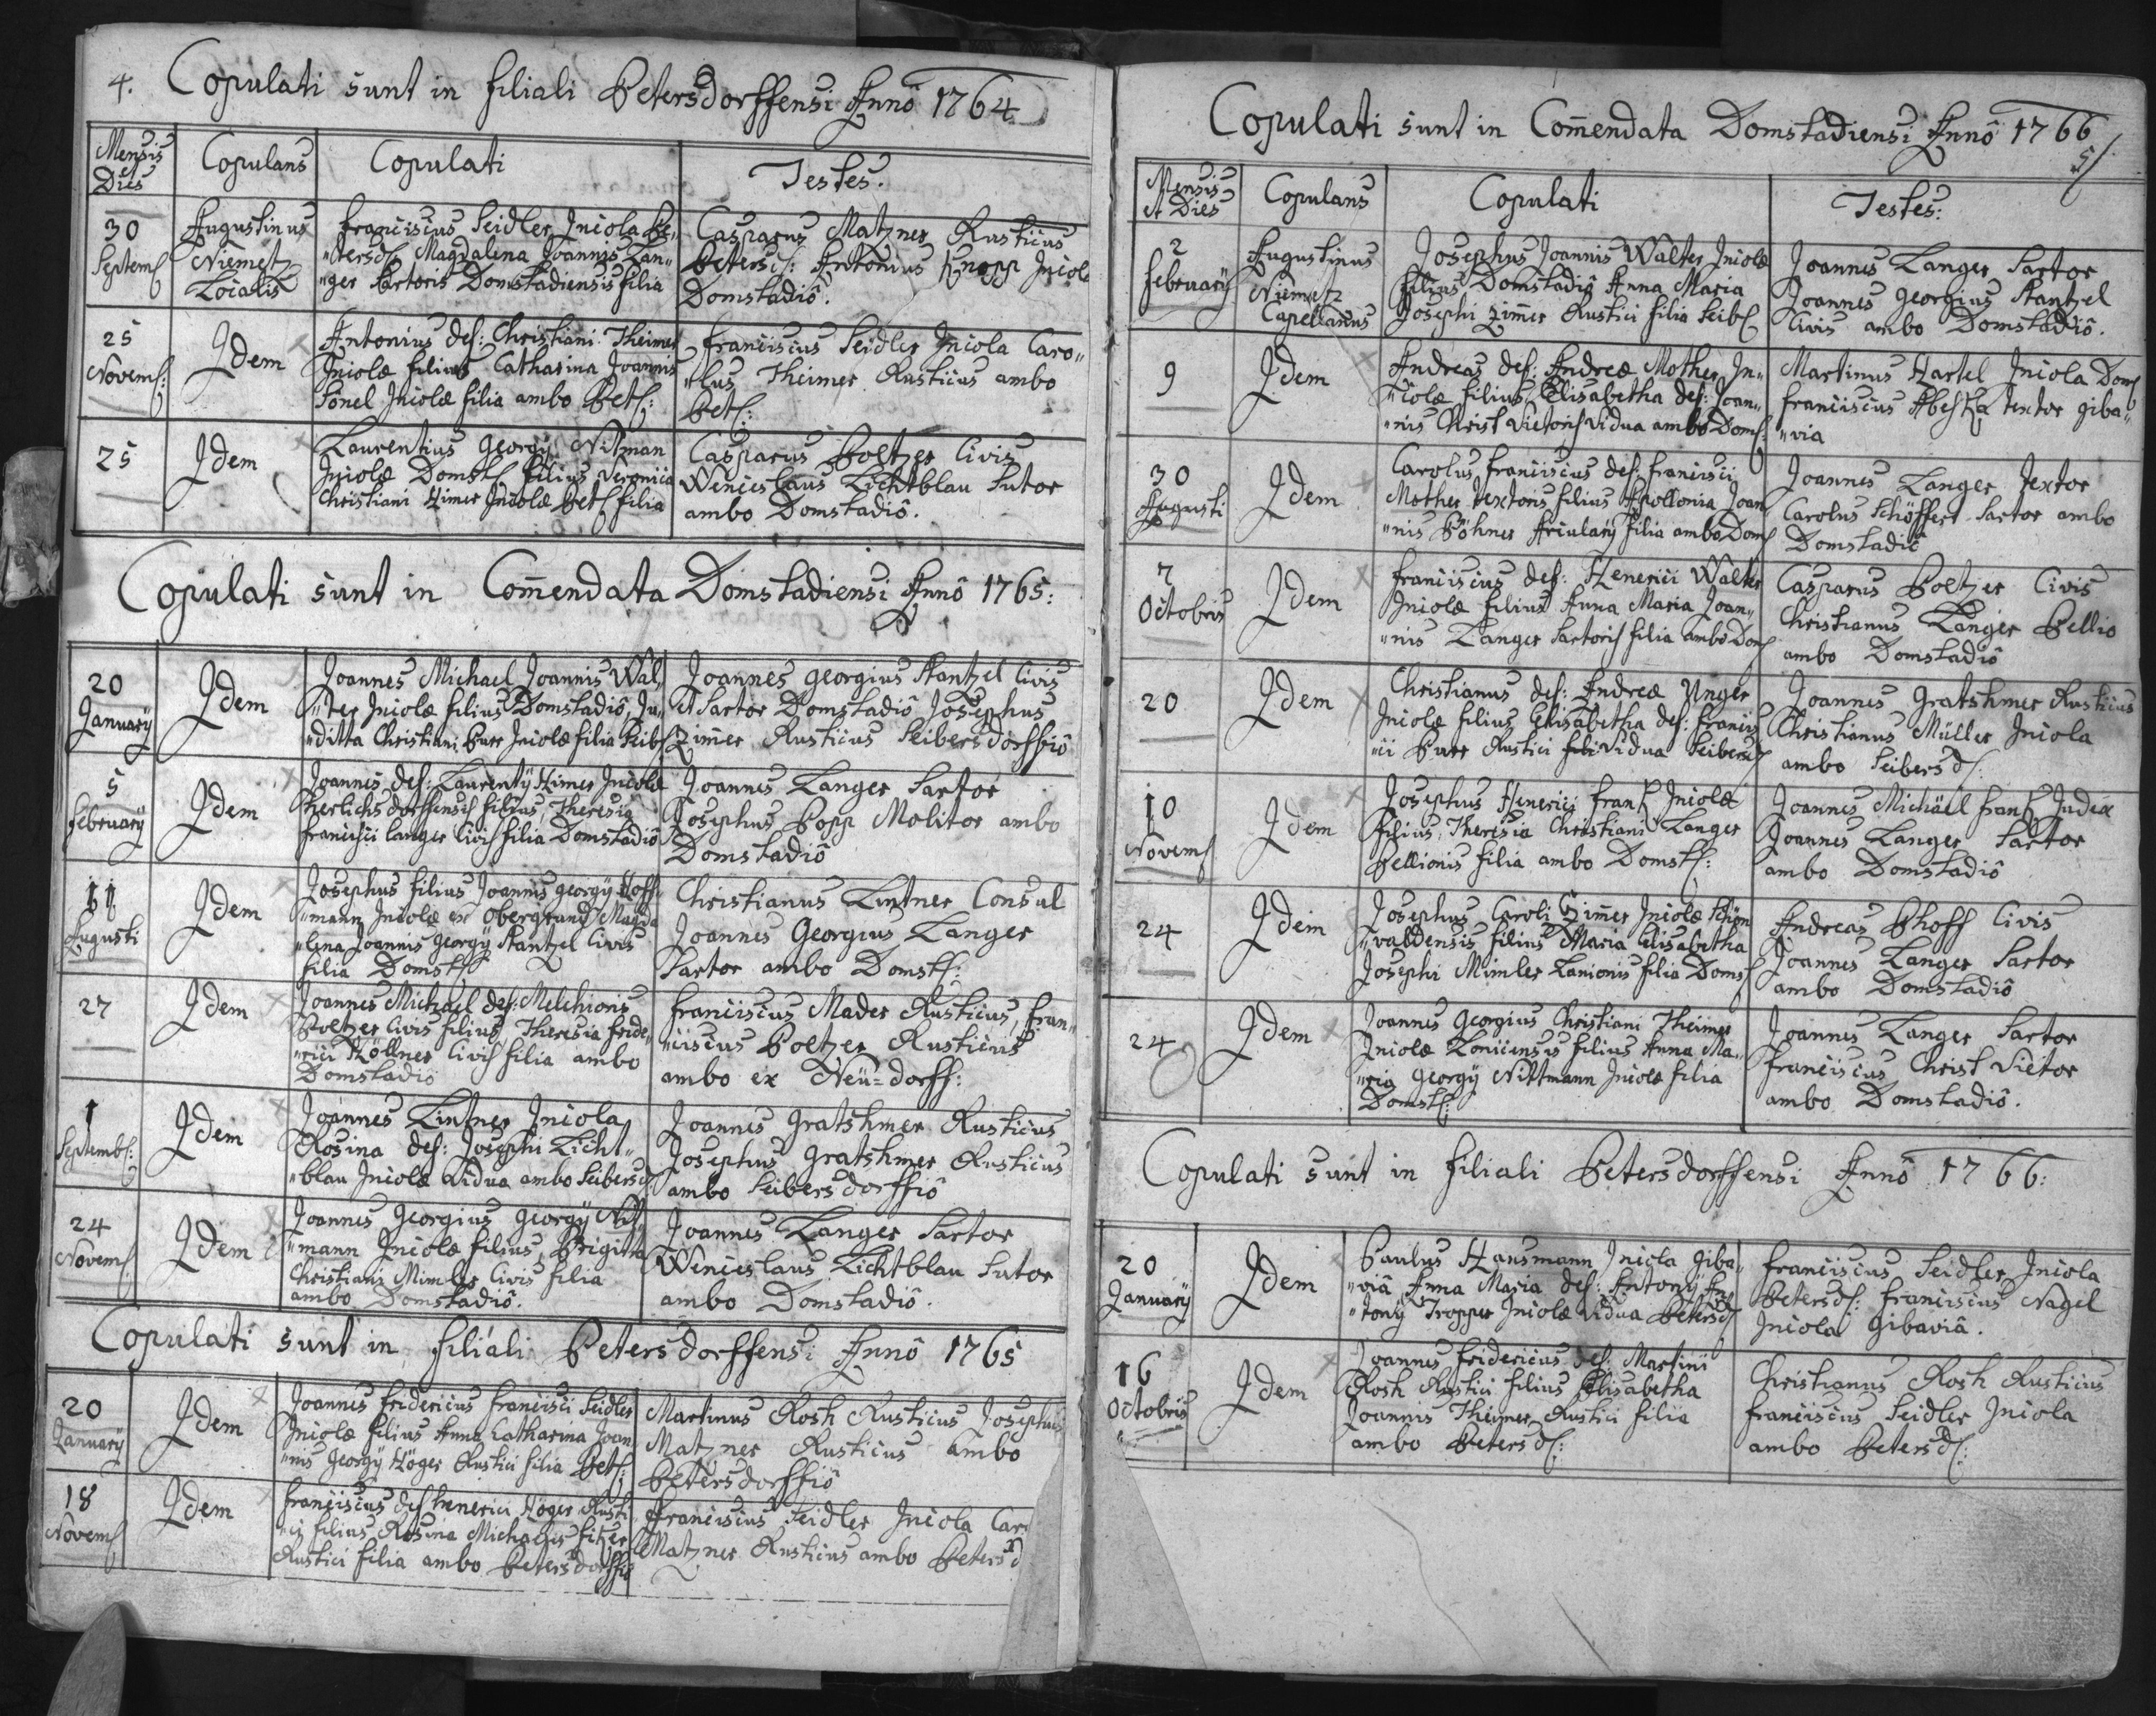 4. Copulati sunt in filiali Petersdorffensi Annô 1764
Mensis et Dies
Copulans
Copulati
Testes.
30 Septem:
Augustinus
Niemetz
Localis
Franciscus Seidler Incola Pe„
„tersd: Magdalena Joannis Lan„
„ger Sartoris Domstadiensis filia
Casparus Matzner Rusticus
Petersd: Antonius Knopp Incola
Domstadiô.
25 Novem:
Idem
Antonius def: Christiani Theimer
Incolæ filius Catharina Joannis
Sonel Incolæ filia ambo Pet:
Franciscus Seidler Incola Caro„
„lus Theimer Rusticus ambo
Pet:
25
Idem
Laurentius Georgÿ Nitman
Incolæ Domst: filius Veronica
Christiani Himer Incolæ Pet: filia
Casparus Poltzer Civis
Wenceslaus Lichtblau Sutor
ambo Domstadiô.
Copulati sunt in Com̃endata Domstadiensi Annô 1765:
20 Januarÿ
Idem
Joannes Michael Joannis Wal„
„ter Incolæ filius Domstadiô, Ju„
„ditta Christiani Purr Incolæ filia Seib:
Joannes Georgius Stantzel Civis
et Sartor Domstadiô Josephus
Zim̃er Rusticus Seibersdorffiô
5 Februarÿ
Idem
Joannes def: Laurentÿ Himer Incolæ
Herlichsdorffensis filius, Theresia
Francisci Langer Civis filia Domstadiô
Joannes Langer Sartor
Josephus Popp Molitor ambo
Domstadiô
11 Augusti
Idem
Josephus filius Joannis Georgÿ Hoff„
„mann Incolæ ex Obergrund Magda
„lena Joannis Georgÿ Stantzel Civis
filia Domst:
Christianus Lintner Consul
Joannes Georgius Langer
Sartor ambo Domst:
27
Idem
Joannes Michael def: Melchioris
Poltzer Civis filius Theresia Fride„
„rici Köllner Civis filia ambo
Domstadiô
Franciscus Mader Rusticus, Fran„
„ciscus Poltzer Rusticus
ambo ex Neü=dorff:
1 Septemb:
Idem
Joannes Lintner Incola
Rosina def: Josephi Licht„
„blau Incolæ Vidua ambo Seibersd:
Joannes Gratshmer Rusticus
Josephus Gratshmer Rusticus
ambo Seibersdorffiô
24 Novem:
Idem
Joannes Georgius Georgÿ Nit„
„mann Incolæ filius, Brigitta
Christiani Mimler Civis filia
ambo Domstadiô.
Joannes Langer Sartor
Wenceslaus Lichtblau Sutor
ambo Domstadiô.
Copulati sunt in filiali Petersdorffensi Annô 1765
20 Januarÿ
Idem
Joannes Fridericus Francisci Seidler
Incolæ filius Anna Catharina Joan
„nis Georgÿ Höger Rustici filia Pet:
Martinus Rosh Rusticus Josephus
Matzner Rusticus ambo
Petersdorffiô
18 Novem:
Idem
Franciscus def: Henerici Höger Rusti
„ci filius, Rosina Michaelis Fitzer
Rustici filia ambo Petersdorffiô
Franciscus Seidler Incola Car
Matzner Rusticus ambo Petersd
Copulati sunt in Com̃endata Domstadiensi Annô 1766
5
Mensis et Dies
Copulans
Copulati
Testes:
2 Februarÿ
Augustinus
Niemetz
Capellanus
Josephus Joannis Walter Incolæ
filius Domstadiô Anna Maria
Josephi Zim̃er Rustici filia Seib:
Joannes Langer Sartor
Joannes Georgius Stantzel
Civis ambo Domstadiô.
9
Idem
Andreas def: Andreæ Mother In„
„colæ filius, Elisabetha def: Joan„
„nis Christ Vietoris Vidua ambo Dom:
Martinus Hartel Incola Dom:
Franciscus Textor Giba„
„via
30 Augusti
Idem
Carolus Franciscus def: Francisci
Mother Textoris filius Apollonia Joan
„nis Böhner Arcularÿ filia ambo Dom:
Joannes Langer Textor
Carolus Schöffert Sartor ambo
Domstadiô
7 Octobris
Idem
Franciscus def: Henerici Walter
Incolæ filius Anna Maria Joan„
„nis Langer Sartoris filia ambo Dom:
Casparus Poltzer Civis
Christianus Langer Pellio
ambo Domstadiô
20
Idem
Christianus def: Andreæ Unger
Incolæ filius Elisabetha def: Francis
„ci Purr Rustici Vidua Seibersd:
Joannes Gratshmer Rusticus
Christianus Müller Incola
ambo Seibersd:
10 Novem:
Idem
Josephus Henerici Frantz Incolæ
filius, Theresia Christiani Langer
Pellionis filia ambo Domst:
Joannes Michäel Frantz Judex
Joannes Langer Sartor
ambo Domstadiô
24
Idem
Josephus Caroli Zim̃er Incolæ Schön
„valdensis filius Maria Elisabetha
Josephi Mimler Lanionis filia Doms:
Andreas Phoff Civis
Joannes Langer Sartor
ambo Domstadiô
24
Idem
Joannes Georgius Christiani Theimer
Incolæ Lonicensis filius Anna Ma„
„ria Georgÿ Nittmann Incolæ filia
Domst:
Joannes Langer Sartor
Franciscus Christ Vietor
ambo Domstadiô.
Copulati sunt in filiali Petersdorffensi Annô 1766:
20 Januarÿ
Idem
Paulus Hausmann Incola Giba„
„viâ Anna Maria def: Antonÿ An
„tonÿ Tropper Incolæ Vidua Petersd:
Franciscus Seidler Incola
Petersd: Franciscus Nagel
Incola Gibaviâ.
16 Octobris
Idem
Joannes Fridericus def: Martini
Rosh Rustici filius Elisabetha
Joannis Theimer Rustici filia
ambo Petersd:
Christianus Rosh Rusticus
Franciscus Seidler Incola
ambo Petersd: